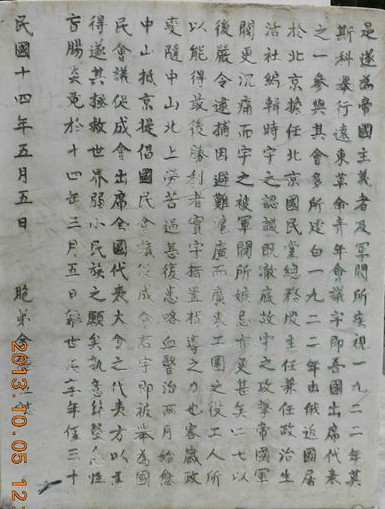 是遂為帝國主義者及軍閥所疾視一九二二年莫
斯科舉行遠東革命青年會議宇即吾國出席代表
之一參與其會多所建白一九二二年由俄返國居
於北京擔任北京國民黨總務股主任兼任政治生
活社編輯時宇之認識既澈底故宇之攻擊帝國軍
閥更沉痛而宇之被軍閥所嫉忌亦更甚矣二七以
後嚴令逮捕因避難滬廣而廣東工團之役工人所
以能得最後勝利者實宇措置指導之力也客歲政
變隨中山北上勞苦過甚復患咯血醫治兩月始愈
中山抵京提倡國民會議促成會宇即被舉為國
民會議促成會出席全國代表大會之代表方以為
得遂其拯救世界弱小民族之願矣孰意
盲腸炎竟於十四年三月五日辭世享年僅三十
民國十四年五月五日 晚弟余
2013.10.05 12: